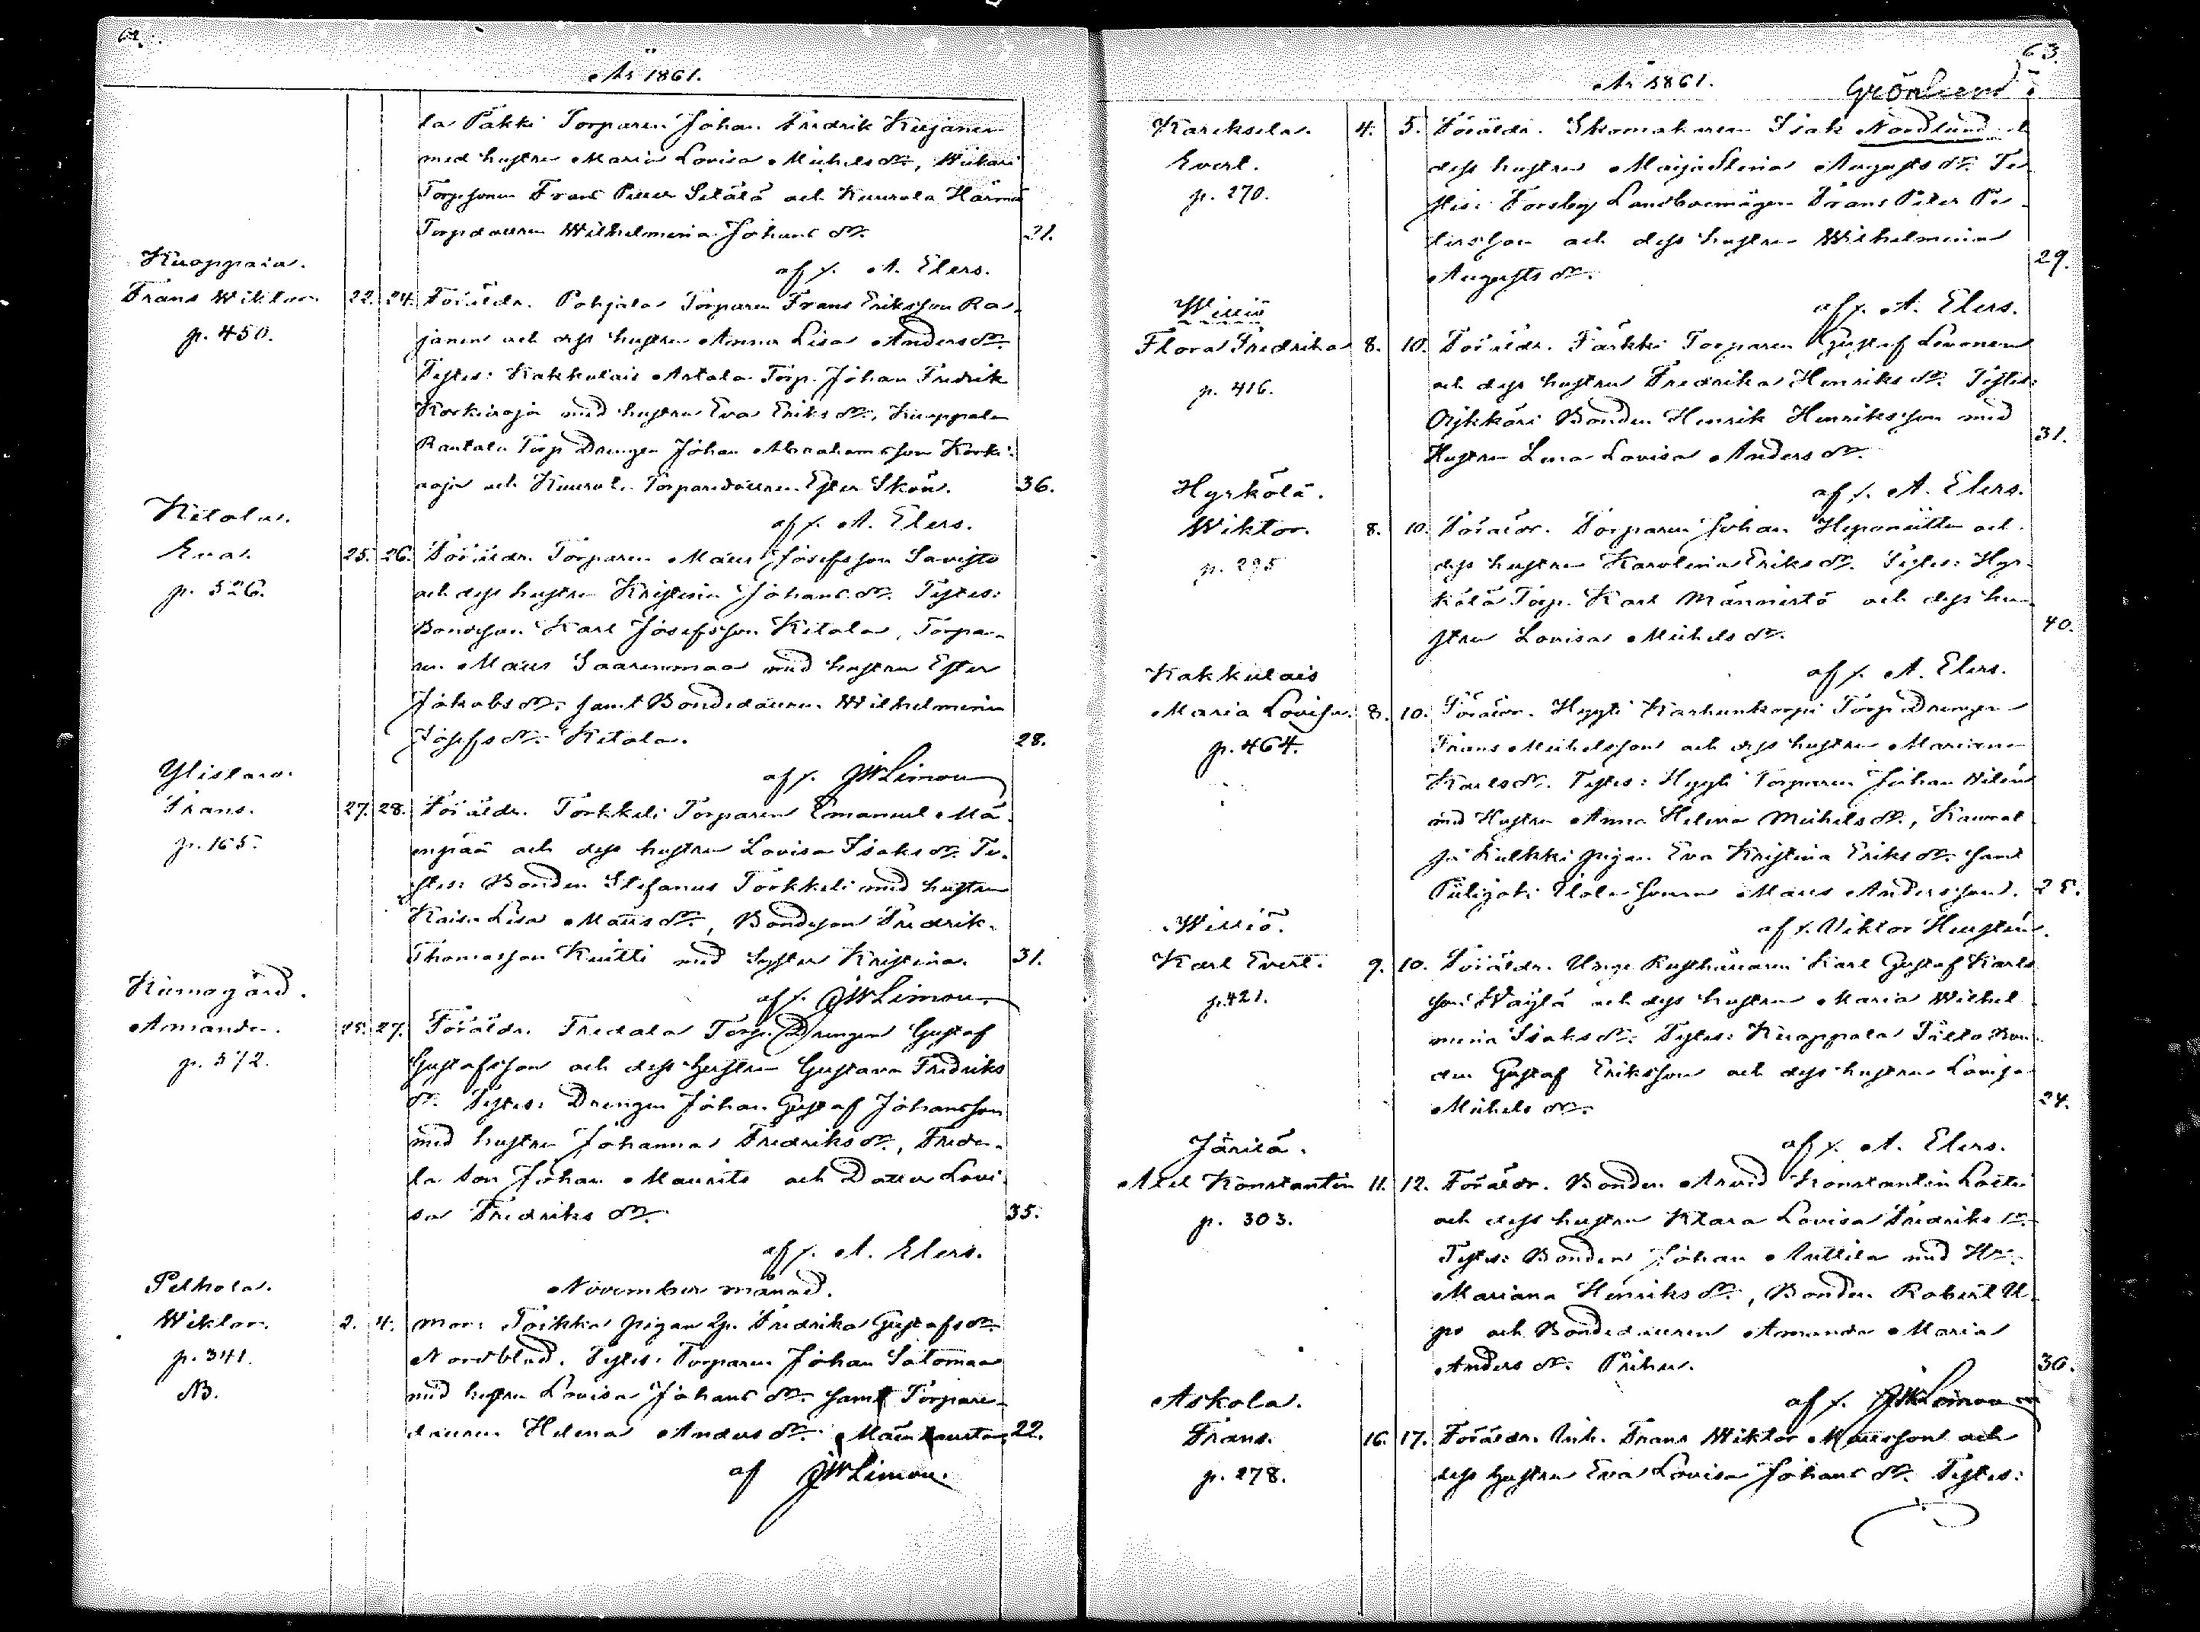 62.
År 1861.
la Pakki Torparen Johan Fredrik Kujanen
med hustru Maria Lovisa Michelsdr, Wiikari
Torpsonen Frans Petter Setälä och Kuurola Härmä
Torpdottren Wilhelmina Johansdr. 21.
af f. A. Elers.
Kuoppala.
Frans Wiktor 22. 24. Föräldr. Pohjala Torparen Frans Eriksson Ra-
p. 450.
janen och dess hustru Anna Lisa Andersdr.
Testes: Kakkulais Astala Torp. Johan Fredrik
Korkiaoja med hustru Eva Eriksdr, Kuoppala
Rantala Torp Drengen Johan Abrahamsson Korki-
aoja och Kuurola Torparedottren Ester Skön. 36.
af f. A. Elers.
Kitola.
Eva. 25. 26. Föräldr. Torparen Matts Josefsson Savisto
p. 526.
och dess hustru Kristina Johansdr. Testes:
Bondeson Karl Josefsson Kitola, Torpa-
ren Matts Saarenmaa med hustru Ester
Jakobsdr samt Bondedottren Wilhelmina
Josefsdr Kitola. 28.
af f. JWLimon
Ylistaro.
Frans. 27. 28. Föräldr. Torkkeli Torparen Emanuel Mä-
p. 165.
enpää och dess hustru Lovisa Isaksdr. Te-
stes: Bonden Stefanus Torkkeli med hustru
Kaisa Lisa Mattsdr, Bondeson Fredrik
Thomasson Knitti med Syster Kristina. 31.
af f. JWLimon
Kumogård.
Amanda. 25. 27. Föräldr. Fredala Torp Drengen Gustaf
p. 572.
Gustafsson och dess hustru Gustava Fredriks
dr. Testes: Drengen Johan Gustaf Johansson
med hustru Johanna Fredriksdr, Freda-
la Son Johan Maurits och Dotter Lovi-
sa Fredriksdr. 35.
af f. A. Elers.
November månad.
Pelhola.
Wiktor. 2. 4. Mor: Toikka pigan Fredrika Gustafsdr
p. 341.
Nordblad. Testes: Torparen Johan Salomaa
NB.
med hustru Lovisa Johansdr samt Torpare-
dottren Helena Andersdr 22.
af JWLimon.
63.
År 1861.
Grönlund
Kareksela.
4. 5. Föräldr. Skomakaren Isak Nordlund o
Evert.
dess hustru Maija Stina Augustsdr. Te-
p. 270.
stes: Forsby Landbomågen Frans Peter Pe-
tersson och dess hustru Wilhelmina
Augustsdr. 29.
af f. A. Elers.
Williö
Flora Fredrika 8. 10. Föräldr. Färkki Torparen Gustaf Levonen
p. 416.
och dess hustru Fredrika Henriksdr. Testes:
Ojkkäri Bonden Henrik Henriksson med
Hustru Lena Lovisa Andersdr. 31.
af f. A. Elers.
Hyrkölä.
Wiktor. 8. 10. Föräldr. Torparen Johan Heponiitty och
p. 295
dess hustru Karolina Eriksdr. Testes: Hyr-
kölä Torp. Karl Männistö och dess hu-
stru Lovisa Michelsdr. 40.
af f. A. Elers.
Kakkulais
Maria Lovisa. 8. 10. Föräldr. Hyyti Karhunkorpi Torp Drengen
p. 464.
Frans Michelsson och dess hustru Mariana
Karlsdr. Testes: Hyyti Torparen Johan Wilén
med Hustru Anna Helena Michelsdr, Kannal
ja Kulkki pigan Eva Kristina Eriksdr samt
Ulola Sonen Matts Andersson. 25.
af f. Viktor Heurlin.
Williö.
Karl Evert. 9. 10. Föräldr. Unge Rusthållaren Karl Gustaf Karls
p. 421.
son Wäylä och dess hustru Maria Wilhel-
mina Isaksdr. Testes: Kuoppala Pälto Bon-
den Gustaf Eriksson och dess hustru Lovisa
Michelsdr. 24.
af f. A. Elers.
Järilä.
Axel Konstantin 11. 12. Föräldr. Bonden Arvid Konstantin Lätti
p. 303.
och dess hustru Klara Lovisa Fredriksdr.
Testes: Bonden Johan Anttila med Hru
Mariana Henriksdr, Bonden Robert U-
po och Bondedottren Amanda Maria
Andersdr Prihu. 30.
af f. JWLimon
Askola.
Frans. 16. 17. Föräldr. Inh. Frans Wiktor Mattsson och
p. 278.
dess hustru Eva Lovisa Johansdr. Testes: